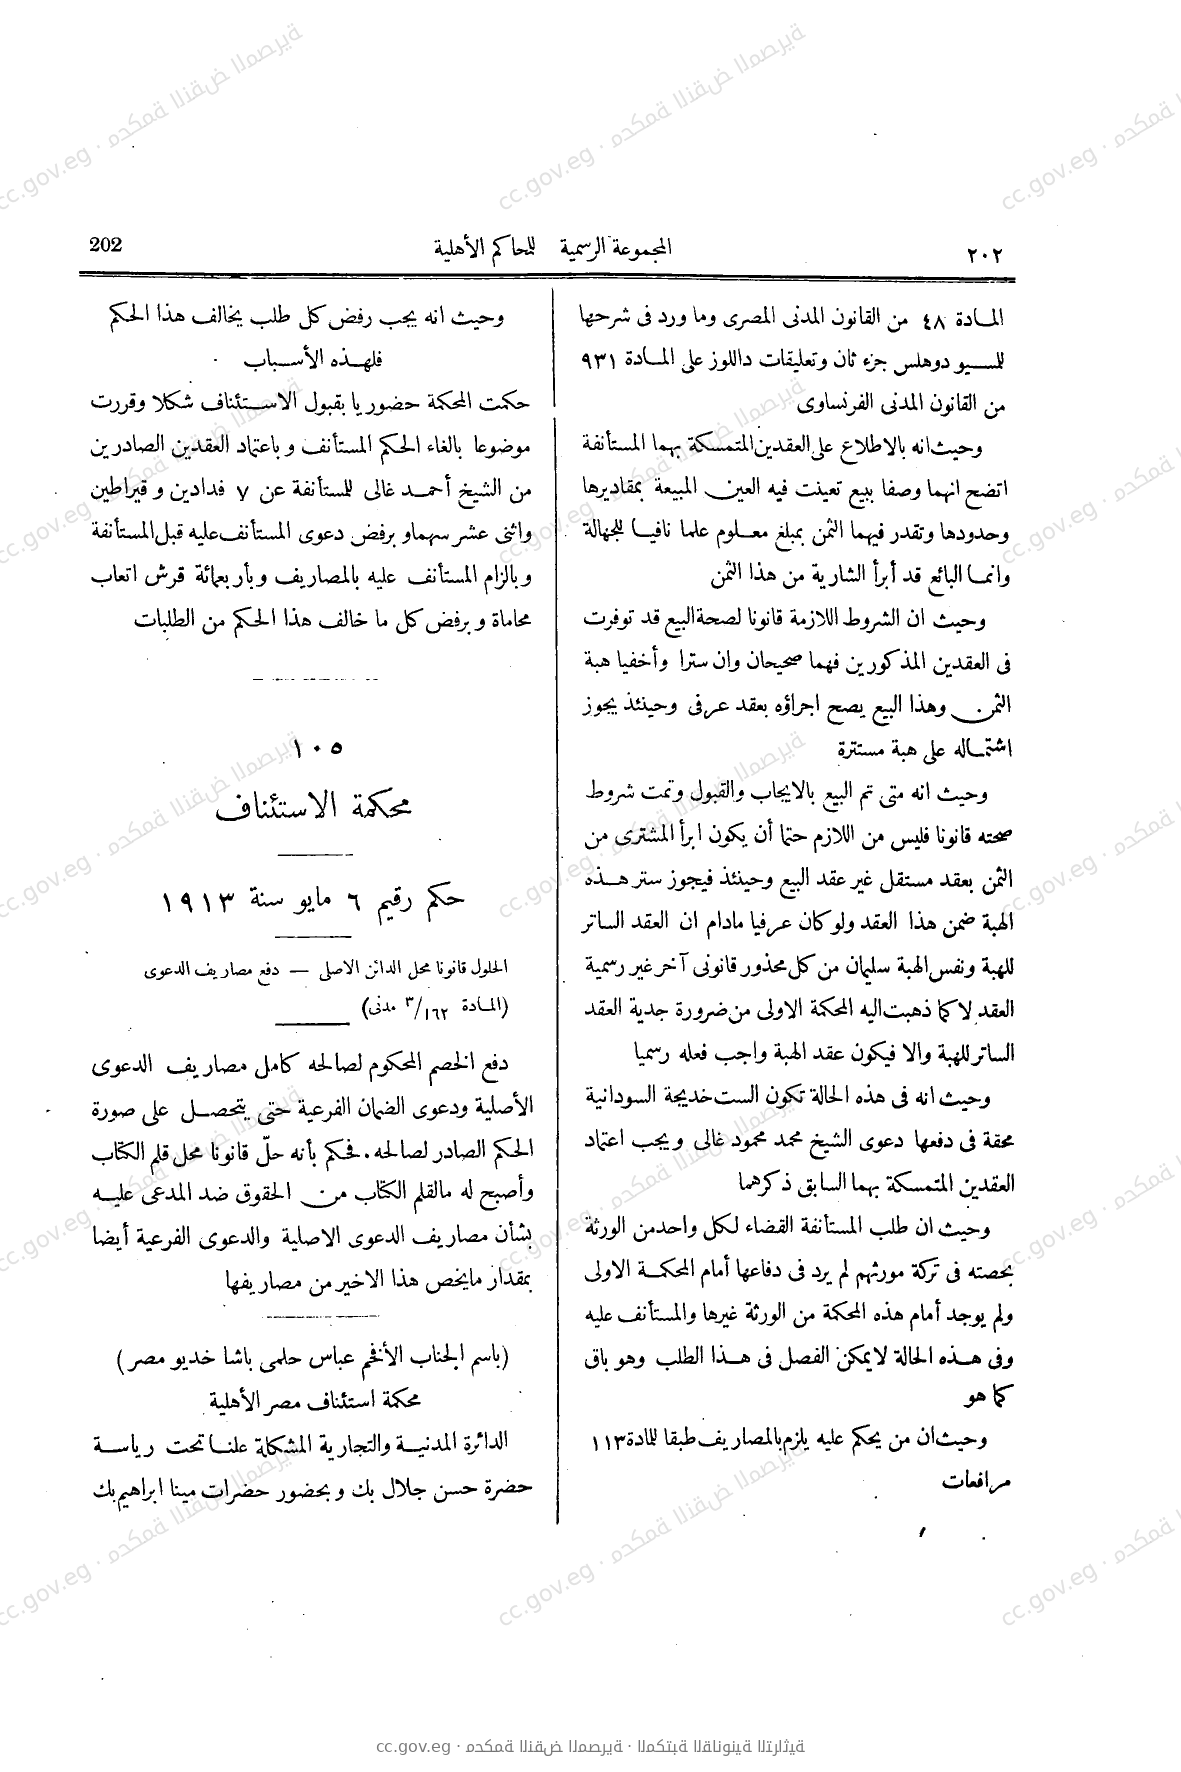 ٢٠٢
المجموعة الرسمية للمحاكم الأهلية
202
المادة ٤٨ من القانون المدنى المصرى وما ورد فى شرحها
للمسيو دوهلس جزء ثان وتعليقات داللوز على المادة ٩٣١
من القانون المدنى الفرنساوى
وحيث انه بالاطلاع على العقدين المتمسكة بهما المستأنفة
اتضح انهما وصفا ببيع تعينت فيه العين المبيعة بمقاديرها
وحدودها وتقدر فيهما الثمن بمبلغ معلوم علما نافيا للجهالة
وانما البائع قد أبرأ الشارية من هذا الثمن
وحيث ان الشروط اللازمة قانونا لصحة البيع قد توفرت
فى العقدين المذكورين فهما صحيحان وان سترا وأخفيا هبة
الثمن وهذا البيع يصح اجراؤه بعقد عرفى وحينئذ يجوز
اشتماله على هبة مستترة
وحيث انه متى تم البيع بالايجاب والقبول وتمت شروط
صحته قانونا فليس من اللازم حتما أن يكون ابرأ المشترى من
الثمن بعقد مستقل غير عقد البيع وحينئذ فيجوز ستر هذه
الهبة ضمن هذا العقد ولو كان عرفيا مادام ان العقد الساتر
للهبة ونفس الهبة سليمان من كل محذور قانونى آخر غير رسمية
العقد لا كما ذهبت اليه المحكمة الاولى من ضرورة جدية العقد
الساتر للهبة والا فيكون عقد الهبة واجب فعله رسميا
وحيث انه فى هذه الحالة تكون الست خديجة السودانية
محقة فى دفعها دعوى الشيخ محمد محمود غالى ويجب اعتماد
العقدين المتمسكة بهما السابق ذكرهما
وحيث ان طلب المستأنفة القضاء لكل واحد من الورثة
بحصته فى تركة مورثهم لم يرد فى دفاعها أمام المحكمة الاولى
ولم يوجد أمام هذه المحكمة من الورثة غيرها والمستأنف عليه
وفى هذه الحالة لا يمكن الفصل فى هذا الطلب وهو باق
كما هو
وحيث ان من يحكم عليه يلزم بالمصاريف طبقا للمادة ١١٣
مرافعات
وحيث انه يجب رفض كل طلب يخالف هذا الحكم
فلهذه الأسباب
حكمت المحكمة حضوريا بقبول الاستئناف شكلا وقررت
موضوعا بالغاء الحكم المستأنف وباعتماد العقدين الصادرين
من الشيخ أحمد غالى للمستأنفة عن ٧ فدادين وقيراطين
واثنى عشر سهما وبرفض دعوى المستأنف عليه قبل المستأنفة
وبالزام المستأنف عليه بالمصاريف وبأربعمائة قرش اتعاب
محاماة وبرفض كل ما خالف هذا الحكم من الطلبات
١٠٥
محكمة الاستئناف
حكم رقيم ٦ مايو سنة ١٩١٣
الحلول قانونا محل الدائن الاصلى — دفع مصاريف الدعوى
(المادة ١٦٢/٣ مدنى)
دفع الخصم المحكوم لصالحه كامل مصاريف الدعوى
الأصلية ودعوى الضمان الفرعية حتى يتحصل على صورة
الحكم الصادر لصالحه. فحكم بأنه حلّ قانونا محل قلم الكتاب
وأصبح له مالقلم الكتاب من الحقوق ضد المدعى عليه
بشأن مصاريف الدعوى الاصلية والدعوى الفرعية أيضا
بمقدار مايخص هذا الاخير من مصاريفها
(باسم الجناب الأفخم عباس حلمى باشا خديو مصر)
محكمة استئناف مصر الأهلية
الدائرة المدنية والتجارية المشكلة علنا تحت رياسة
حضرة حسن جلال بك وبحضور حضرات مينا ابراهيم بك
cc.gov.eg · محكمة النقض المصرية · المكتبة القانونية التراثية